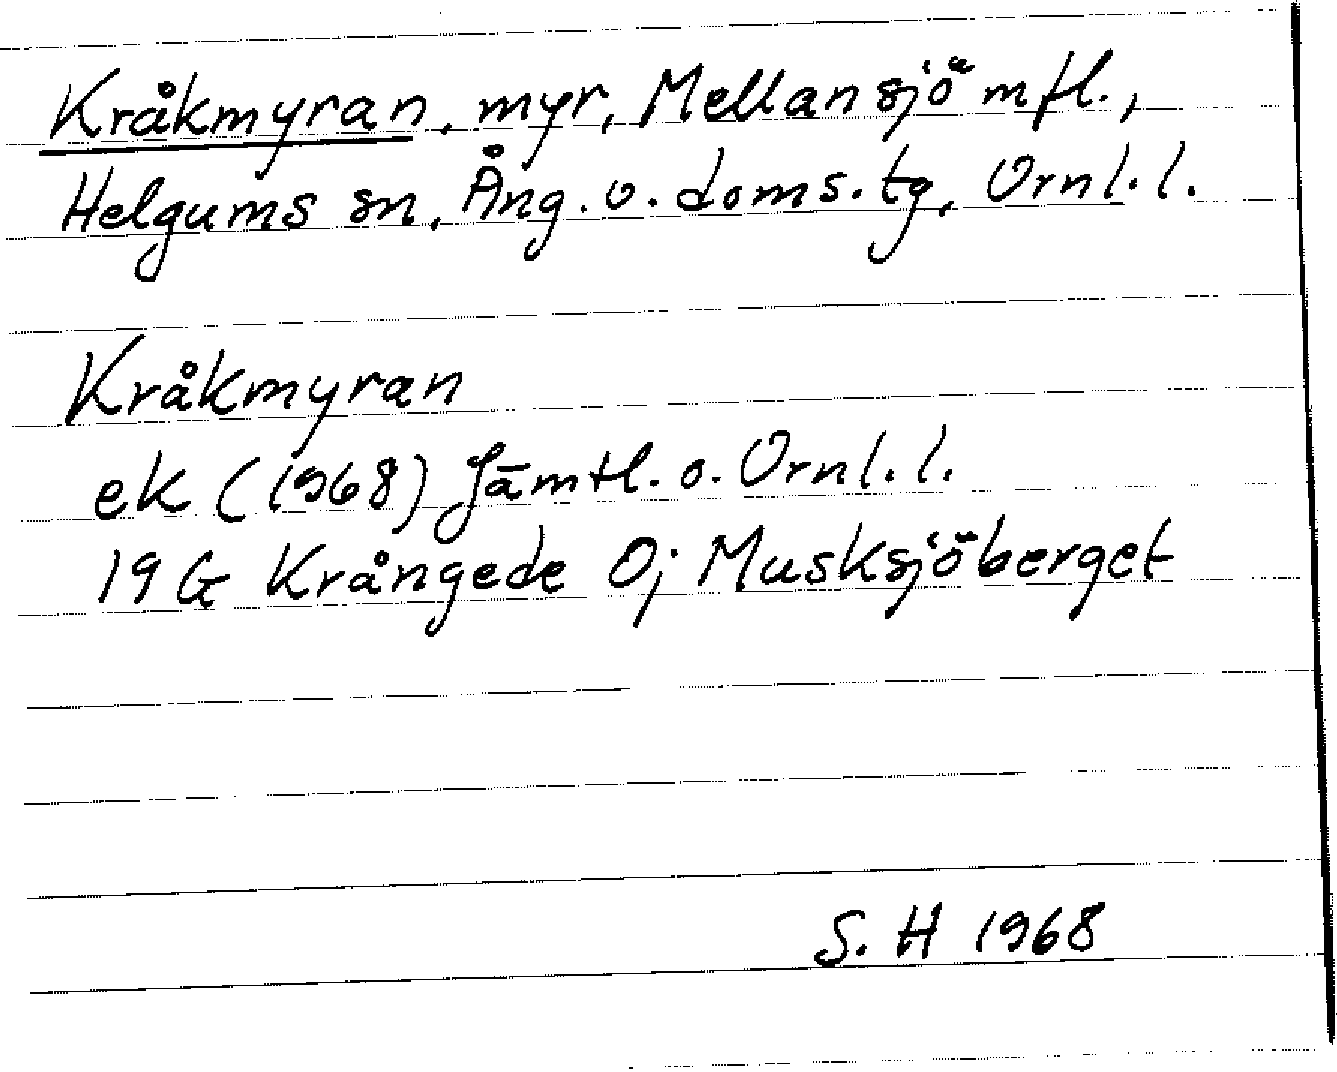 Kråkmyran, myr, Mellansjö mfl.,
Helgums sn, Ång. v. doms. tg, Vrnl. l.
Kråkmyran
ek (1968) Jämtl. o. Vrnl. l.
19 G Krångede O; Musksjöberget
S. H 1968